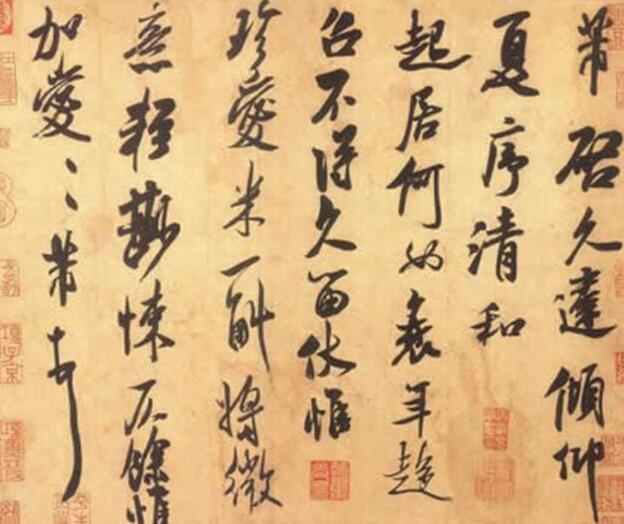 芾啓久違傾仰
夏序清和
起居何如衰年趍
召不得久留伏惟
珍愛米一斛將微
意輕尠悚仄餘惟
加愛〻芾頓首